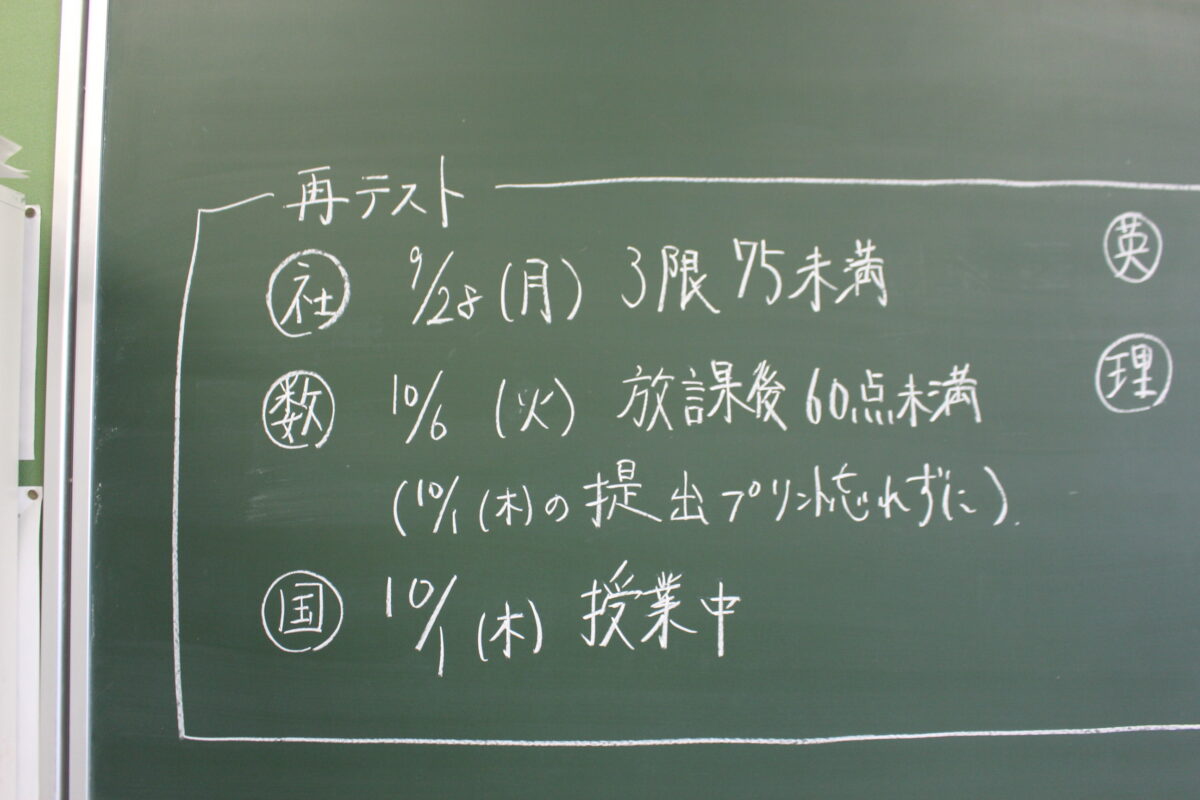 再テスト
社 9/28 (月) 3限 75未満
数 10/6 (火) 放課後 60点未満
(10/1 (木)の提出プリント忘れずに).
国 10/1 (木) 授業中
英
理